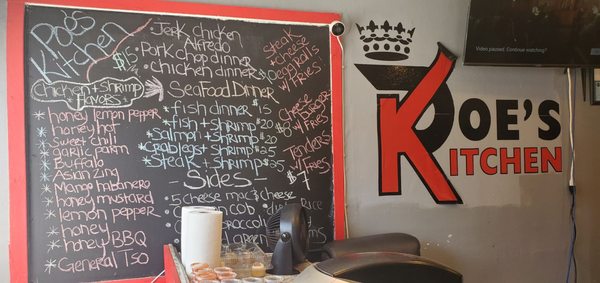 K Poe's
Kitchen
$15
Chicken + Shrimp
Flavors
* honey lemon pepper
* honey hot
* Sweet chili
* garlic parm
* Buffalo
* Asian Zing
* Mango habanero
* honey mustard
* lemon pepper
* honey
* honey BBQ
* General Tso
• Jerk chicken
Alfredo
• Pork chop dinner
• chicken dinner
SeaFood Dinner
* fish dinner $15
* fish + shrimp $20
* Salmon + shrimp $20
* Crab legs + shrimp $25
* Steak + shrimp $25
- Sides -
• 5 cheese mac
cheese
• Corn on cob
Rice
• broccoli
green
Steak
+ cheese
w/ Fries
Cheese
w/ Fries
Tenders
w/ Fries
$7
K POE'S
KITCHEN
Video paused. Continue watching?